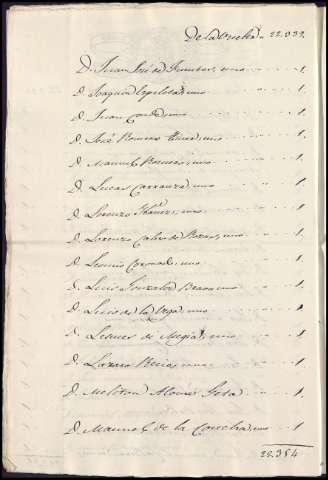 De la vuelta 22.339.
D. Juan José de Fuentes, uno 1.
D. Joaquin Espeleta, uno 1.
D. Juan Conde, uno 1.
D. José Romero, uno 1.
D. Manuel Romero, uno 1.
D. Lucas Carranza, uno 1.
D. Lorenzo Ybañez, uno 1.
D. Lorenzo Calvo de Rozas, uno 1.
D. Leoncio Coronado, uno 1.
D. Luis Gonzalez Bravo, uno 1.
D. Luis de la Vega, uno 1.
D. de Mejia, uno 1.
D. Lazaro Ruiz, uno 1.
D. Meliton Alonso 1.
D. Manuel de la Concha, uno 1.
22.354